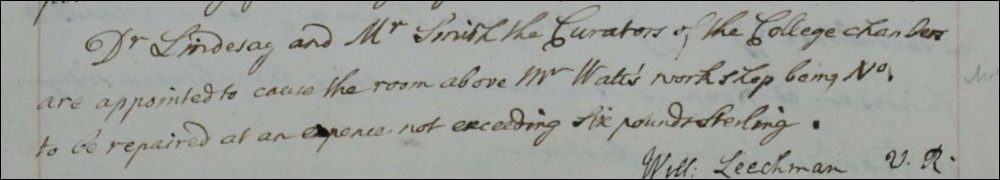 Dr Lindesay and Mr Smith the Curators of the College chambers
are appointed to cause the room above Mr Watt's work shop being No.
to be repaired at an expence not exceeding Six pounds Sterling.
Will: Leechman V. R.